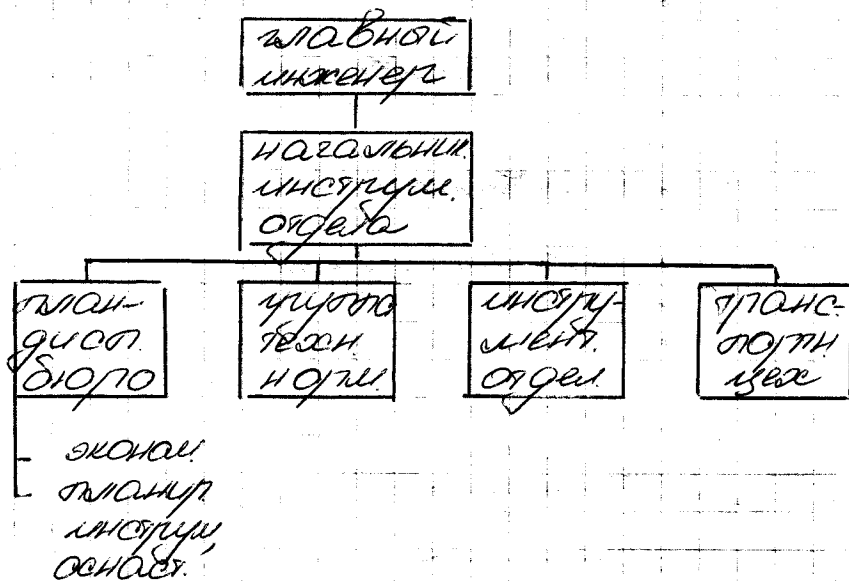 главный
инженер
начальник.
инструм.
отдела
план-
дисп.
бюро
группа
техн.
норм.
инстру-
мент.
отдел
транс-
портн.
цех
- эконом.
- планир.
инструм.
оснаст.